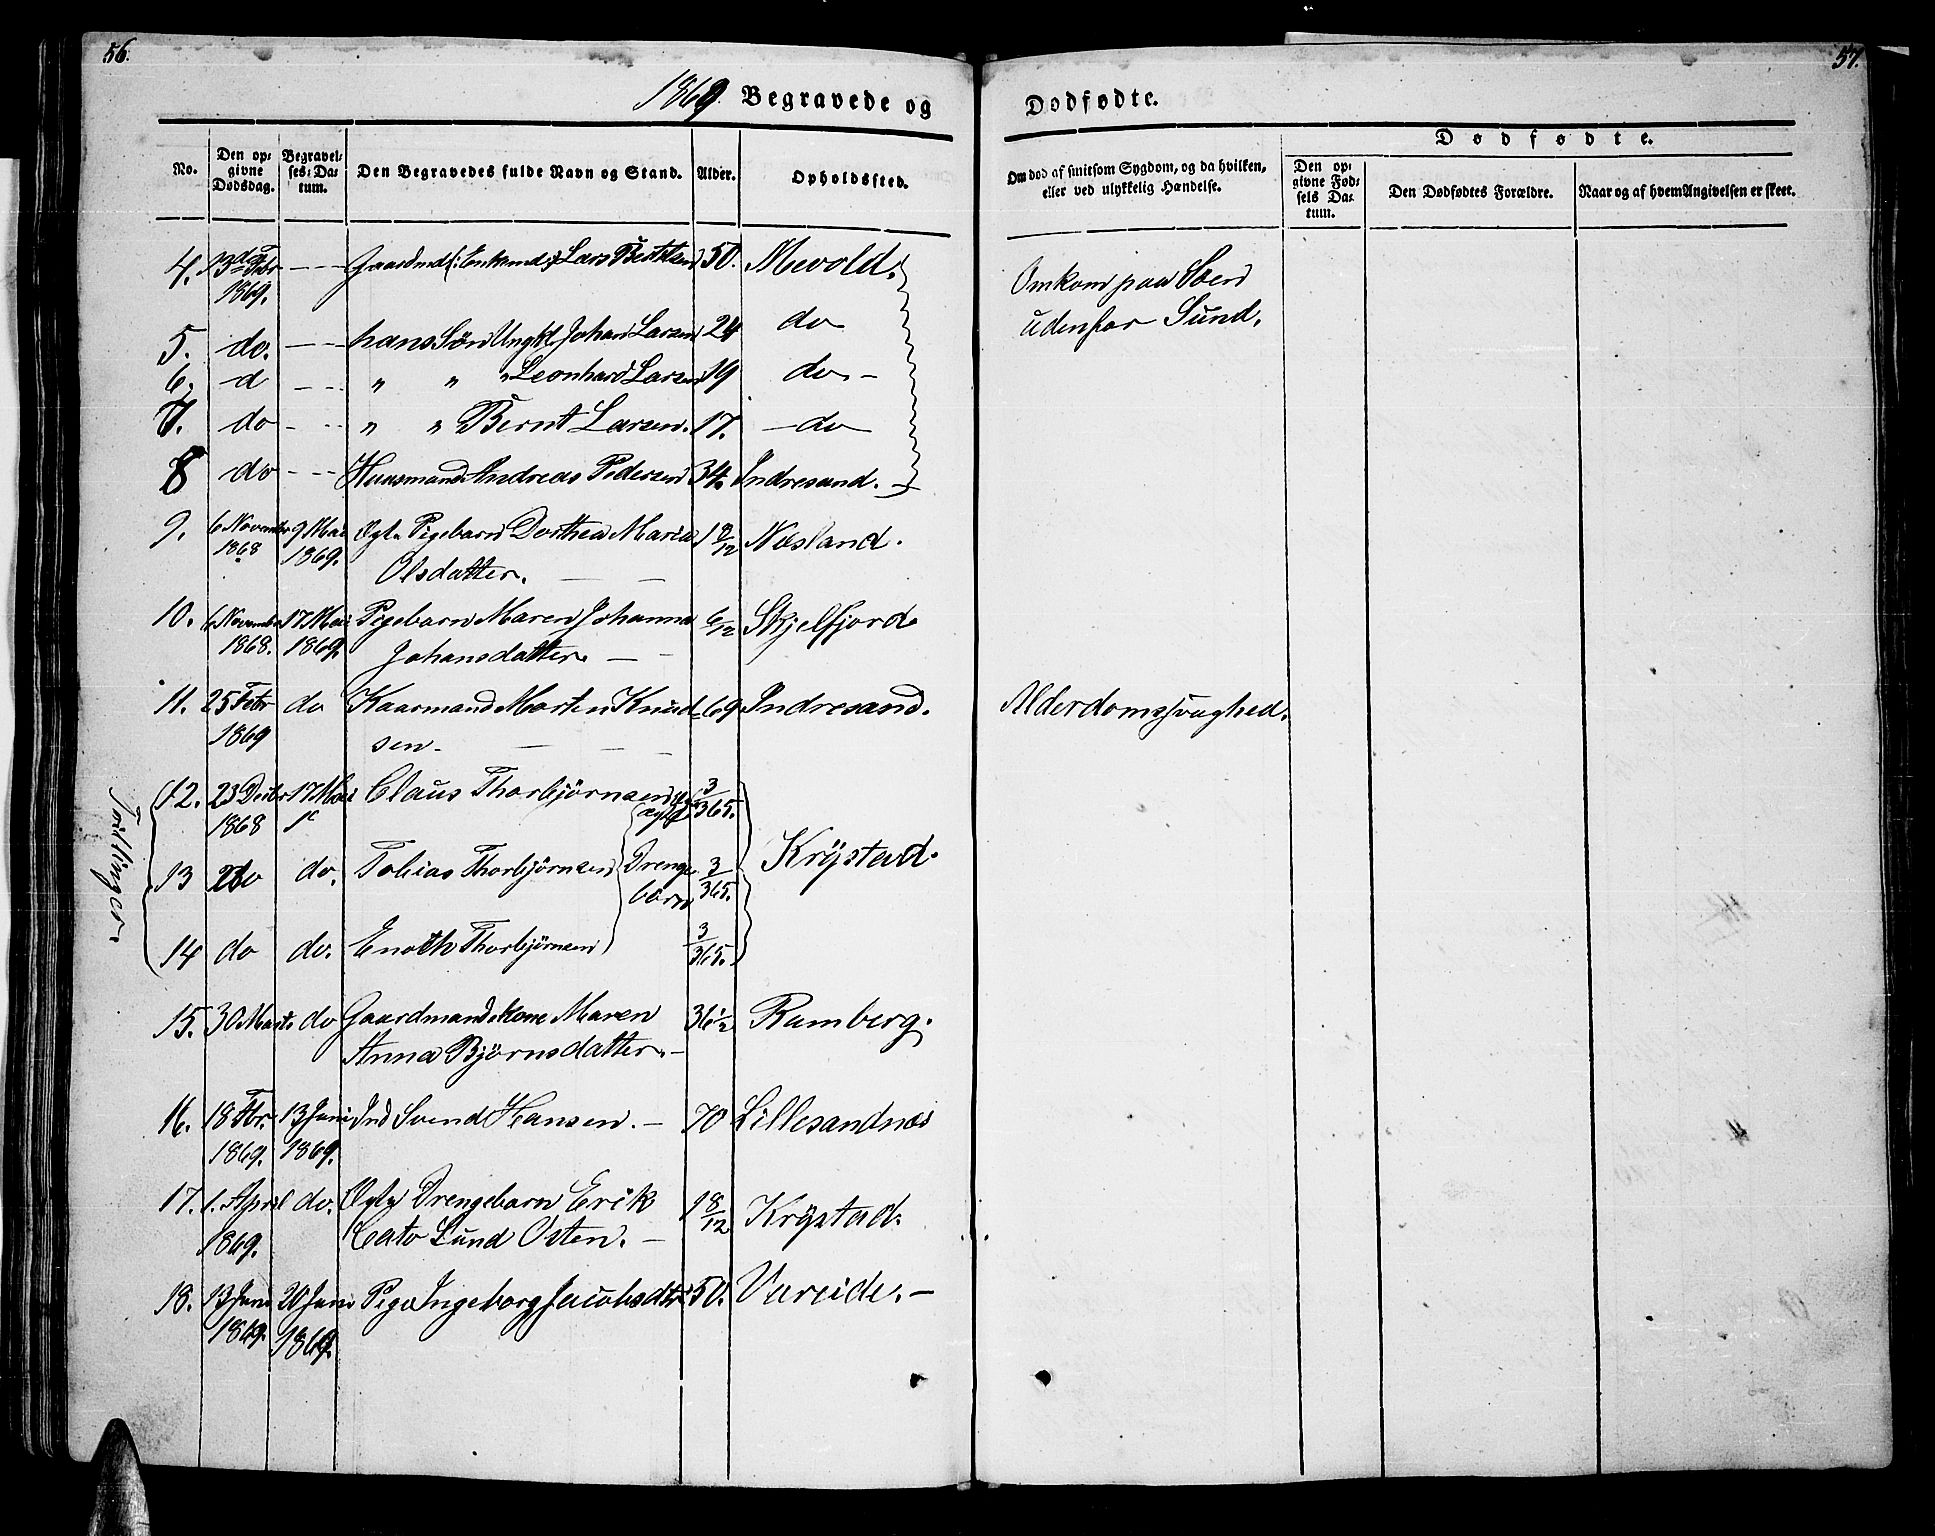 56.
57.
1869. Begravede og Dødfødte.
No.
Den opgivne Dødsdag.
Begravelses-Datum.
Den Begravedes fulde Navn og Stand.
Alder.
Opholdssted.
Om død af smitsom Sygdom, og da hvilken, eller ved ulykkelig Hændelse.
Dødfødte.
Den opgivne Fødsels Datum.
Den Dødfødtes Forældre.
Naar og af hvem Angivelsen er skeet.
4. 13de Febr 1869. - - - Gaardmd (: Enkemd :) Lars 50. Mevold.
Omkom paa Søen
udenfor Sund.
5. do. - - - hans Søn Ungkl Johan Larsen 24 do
6. d - - - " " " Leonhard Larsen 19 do. -
7. do - - - " " Bernt Larsen. 17. - do
8 do - - - Huusmand Andreas Pedersen 34. Indresand. -
9. 6 November 9 Mai Ægte Pigebarn Dorthea Maria 1 8/12 Næsland.
1868 1869. Olsdatter. - -
10. 6 November 17 Mai Pigebarn Maren Johanna 6/12 Skjelfjord
1868. 1869. Johansdatter. - -
11. 25 Febr do Kaarmand Morten Knud- 69 Indresand. Alderdomssvaghed.
1869 sen. - - -
Trillinger.
12. 23 Decbr 17 Mai Claus Thorbjørnsen 3/365.
1868
13 do do. Tobias Thorbjørnsen Drenge 3/365. Krÿstad.
børn
14 do do. Enoch Thorbjørnsen 3/365.
15. 30 Marts do Gaardmandskone Maren 36 1/2 Ramberg.
Anna Bjørnsdatter. -
16. 18 Fbr. 13 Juni Ind Svend Hansen. - 70 Lillesandnæs
1869. 1869.
17. 1. April do. Ægte Drengebarn Erik 1 8/12 Krÿstad.
1869. Cato Lund Osten. -
18. 13 Juni 20 Juni Pige Ingeborg Jacobsdtr 50. Vareide. -
1869. 1869.